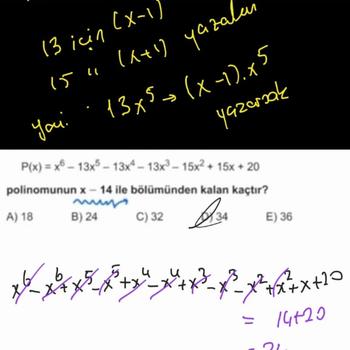 13 için (x-1)
15 " (x+1) yazalım
yani. 13x⁵ → (x-1).x⁵ yazarsak
P(x) = x⁶ – 13x⁵ – 13x⁴ – 13x³ – 15x² + 15x + 20
polinomunun x – 14 ile bölümünden kalan kaçtır?
A) 18 B) 24 C) 32 D) 34 E) 36
x⁶-x⁶+x⁵-x⁵+x⁴-x⁴+x³-x³-x²+x²+x+20
= 14+20
= 34